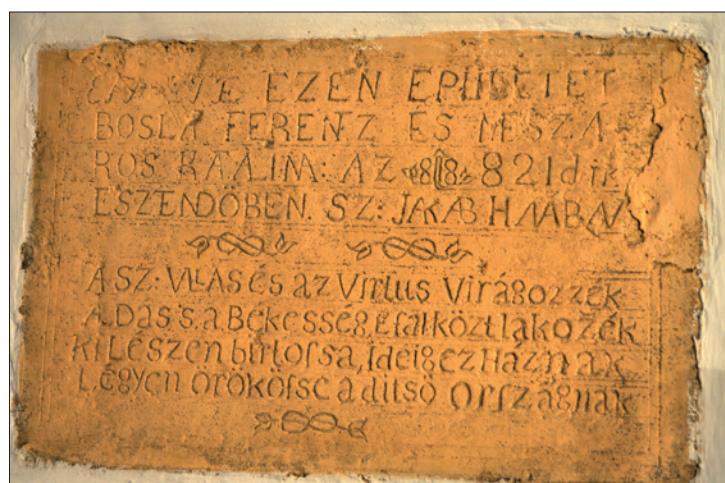 EZEN EPÜLETET
BOSLA FERENZ ÉS MESZÁ-
ROS KAALIM: AZ 1821dik
ESZENDÖBEN. SZ: JAKAB HAÁBAN
A SZ: VLLAS és az Virtus Virágozzék
A Dás s. a Bekesség, E falközt lakozék
Ki Lészen birtosſa, Ideig ez Háznak
Légyen örökösſe a ditsö Orſzágnak